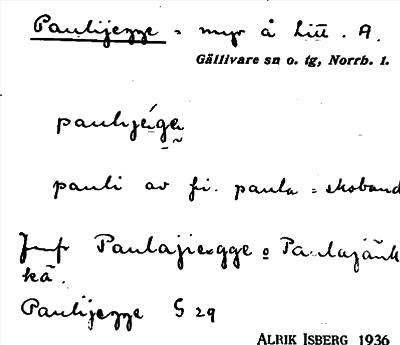 Paulijegge = myr å litt. A.
Gällivare sn o. tg, Norrb. l.
pauli av fi. paula = skoband
Jmf Paulajiegge o Paulajänk
kä.
Paulijegge G 29
ALRIK ISBERG 1936